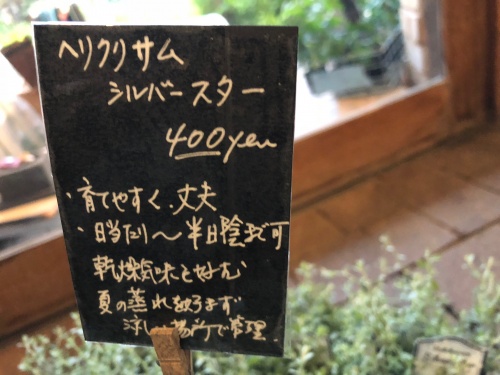 ヘリクリサム
シルバースター
400yen
・育てやすく、丈夫
・日当たり〜半日陰まで可
乾燥気味を好む
夏の蒸れ
涼しい場所で管理